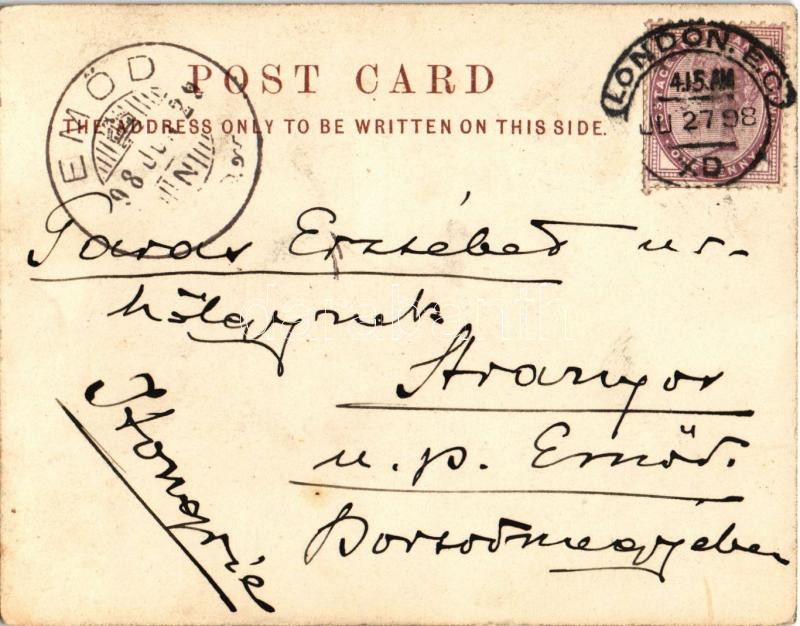 POST CARD
THE ADDRESS ONLY TO BE WRITTEN ON THIS SIDE.
EMŐD
98 JUL 29
N
LONDON. E.C.
4.15.AM
JU 27 98
XD
Erzsébet ur-
hölgynek
Aranyos
u. p. Emőd.
Borsodmegyében
Hongrie
darabanth